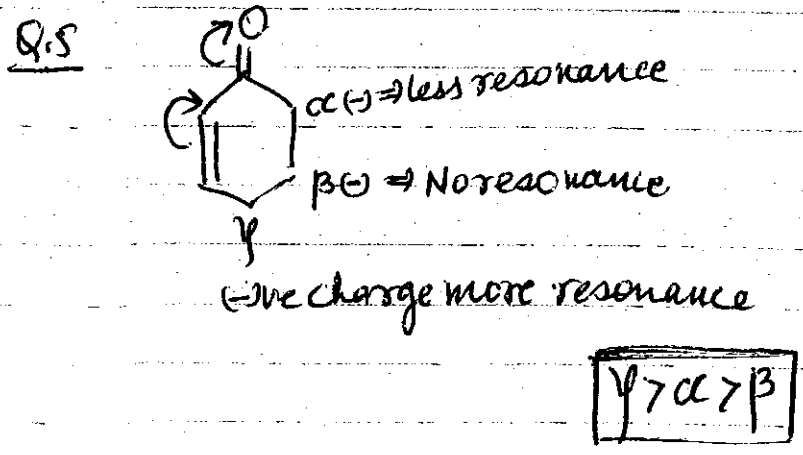 Q.5
O
α(-) ⇒ less resonance
β(-) ⇒ No resonance
γ
(-)ve charge more resonance
γ > α > β